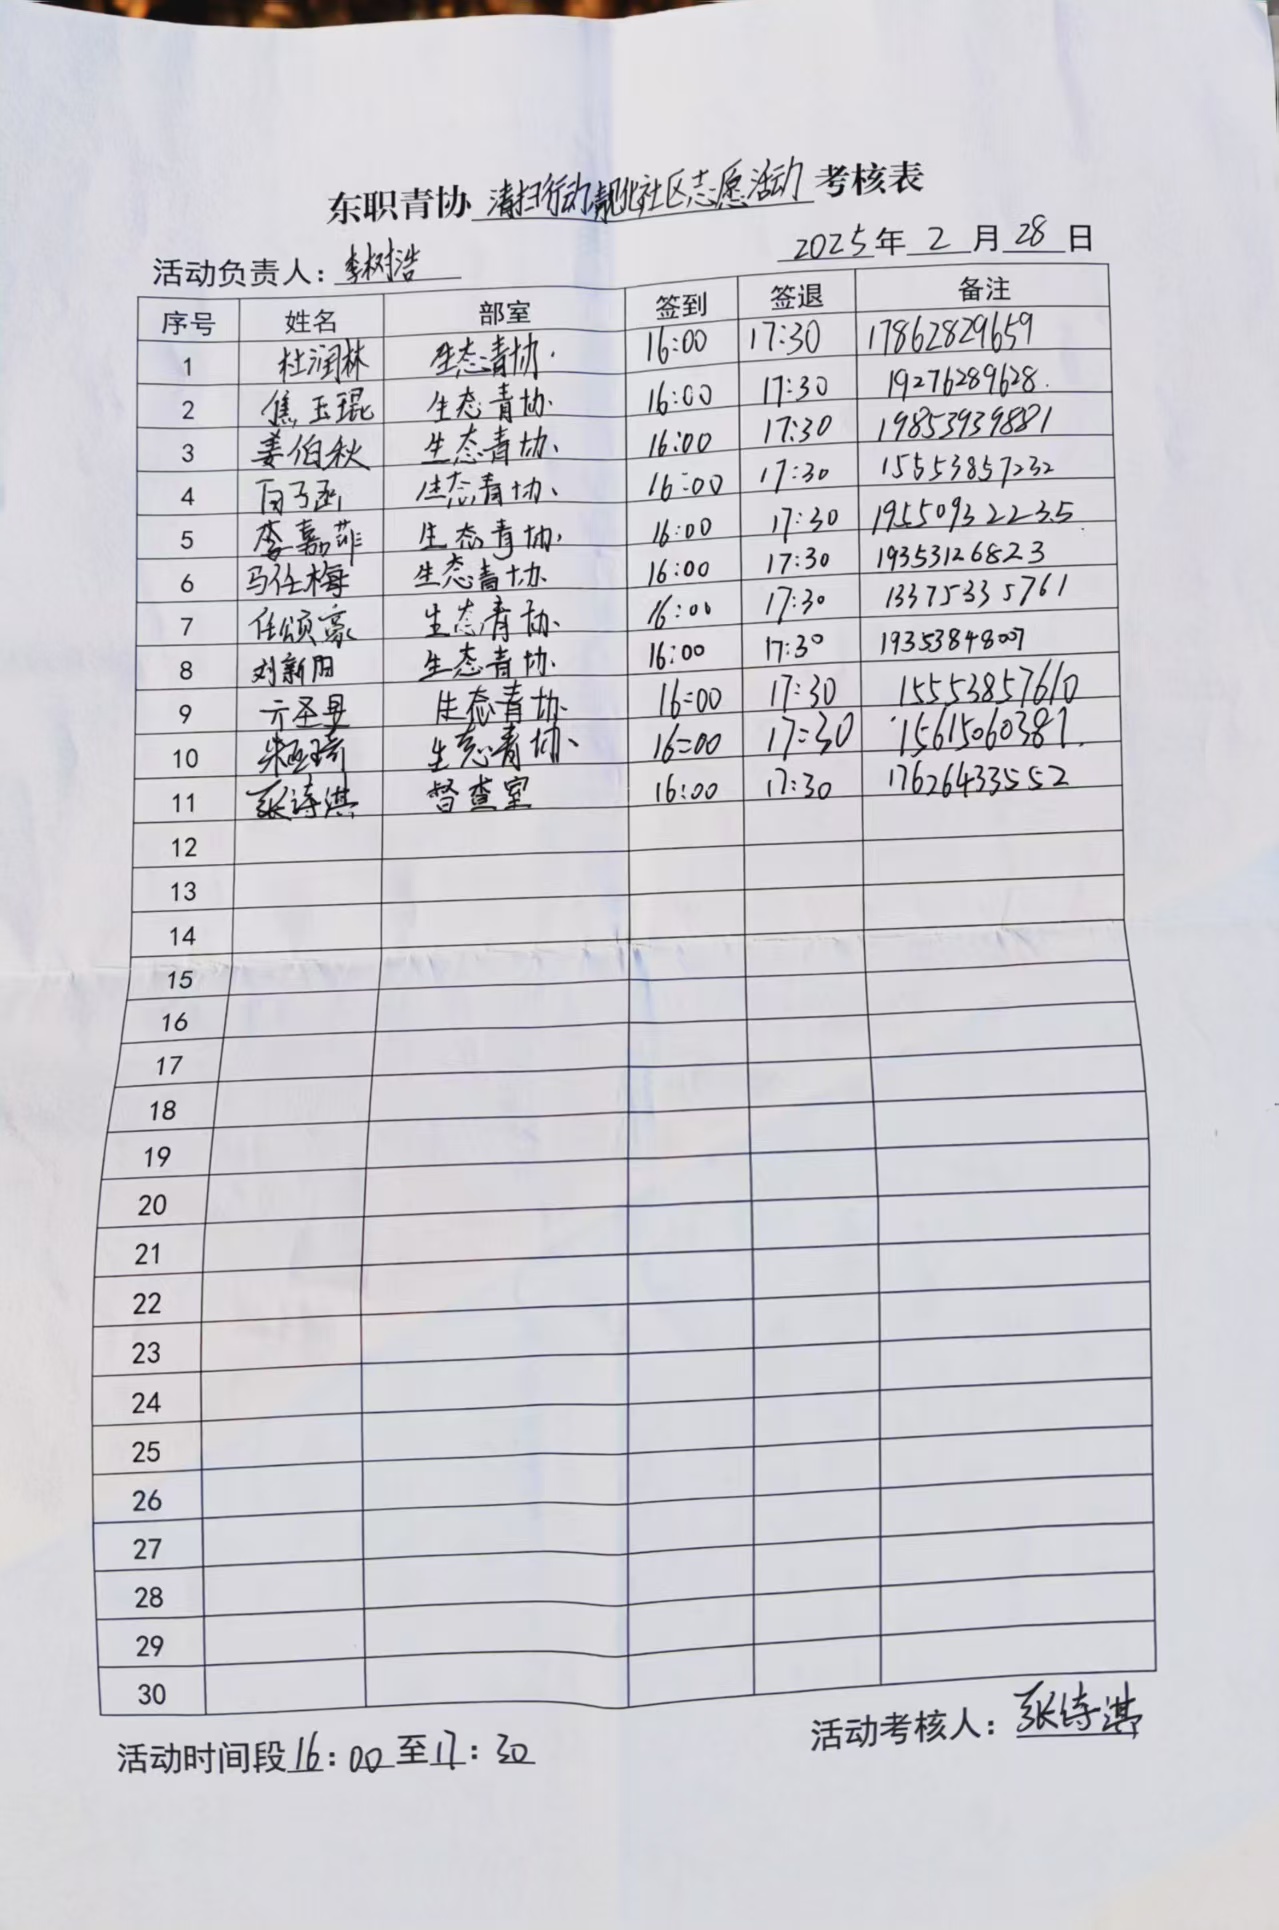 东职青协 清扫行动靓化社区志愿活动 考核表
2025年 2 月 28 日
活动负责人：李树浩
序号 姓名 部室 签到 签退 备注
1 杜润林 生态青协 16:00 17:30 17862829659
2 焦玉琨 生态青协 16:00 17:30 19276289628
3 姜伯秋 生态青协 16:00 17:30 19853939881
4 生态青协 16:00 17:30 15553857232
5 李嘉菲 生态青协 16:00 17:30 19550932235
6 马任梅 生态青协 16:00 17:30 19353126823
7 任颂豪 生态青协 16:00 17:30 13375335761
8 刘新阳 生态青协 16:00 17:30 19353848007
9 亓圣昙 生态青协 16:00 17:30 15553857610
10 生态青协 16:00 17:30 15615060381
11 张诗淇 督查室 16:00 17:30 17626433552
12
13
14
15
16
17
18
19
20
21
22
23
24
25
26
27
28
29
30
活动时间段16：00至17：30
活动考核人：张诗淇